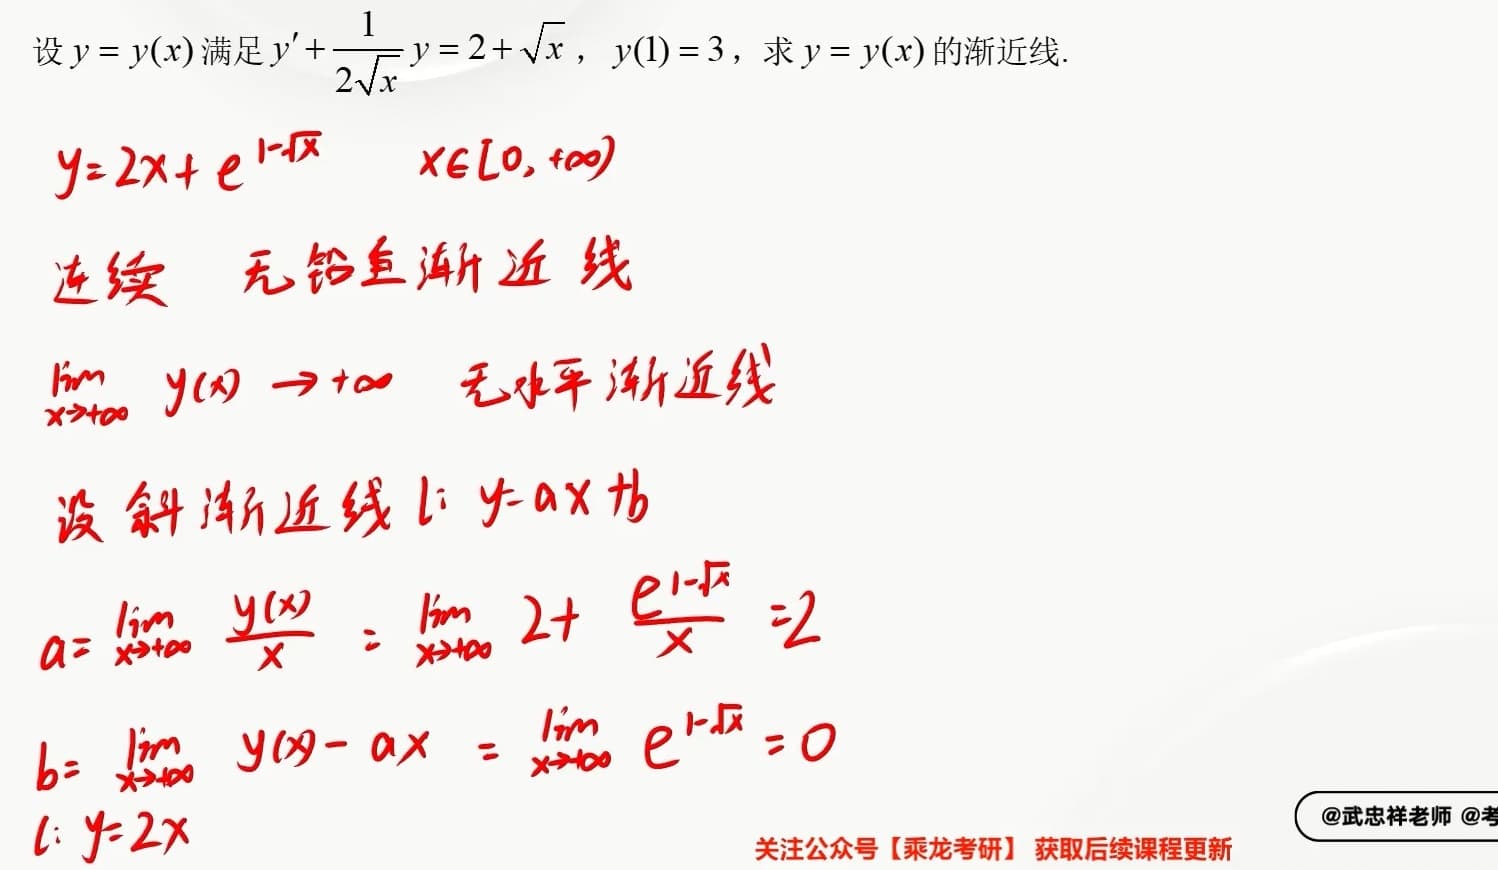 设 y = y(x) 满足 y′ + \frac{1}{2\sqrt{x}} y = 2 + \sqrt{x}，y(1) = 3，求 y = y(x) 的渐近线.
y = 2x + e^{1-\sqrt{x}}  x∈[0, +∞)
连续 无铅垂渐近线
\lim_{x→+∞} y(x) → +∞ 无水平渐近线
设斜渐近线 l: y = ax + b
a = \lim_{x→+∞} \frac{y(x)}{x} = \lim_{x→+∞} 2 + \frac{e^{1-\sqrt{x}}}{x} = 2
b = \lim_{x→+∞} y(x) - ax = \lim_{x→+∞} e^{1-\sqrt{x}} = 0
l: y = 2x
@武忠祥老师 @考
关注公众号【乘龙考研】 获取后续课程更新